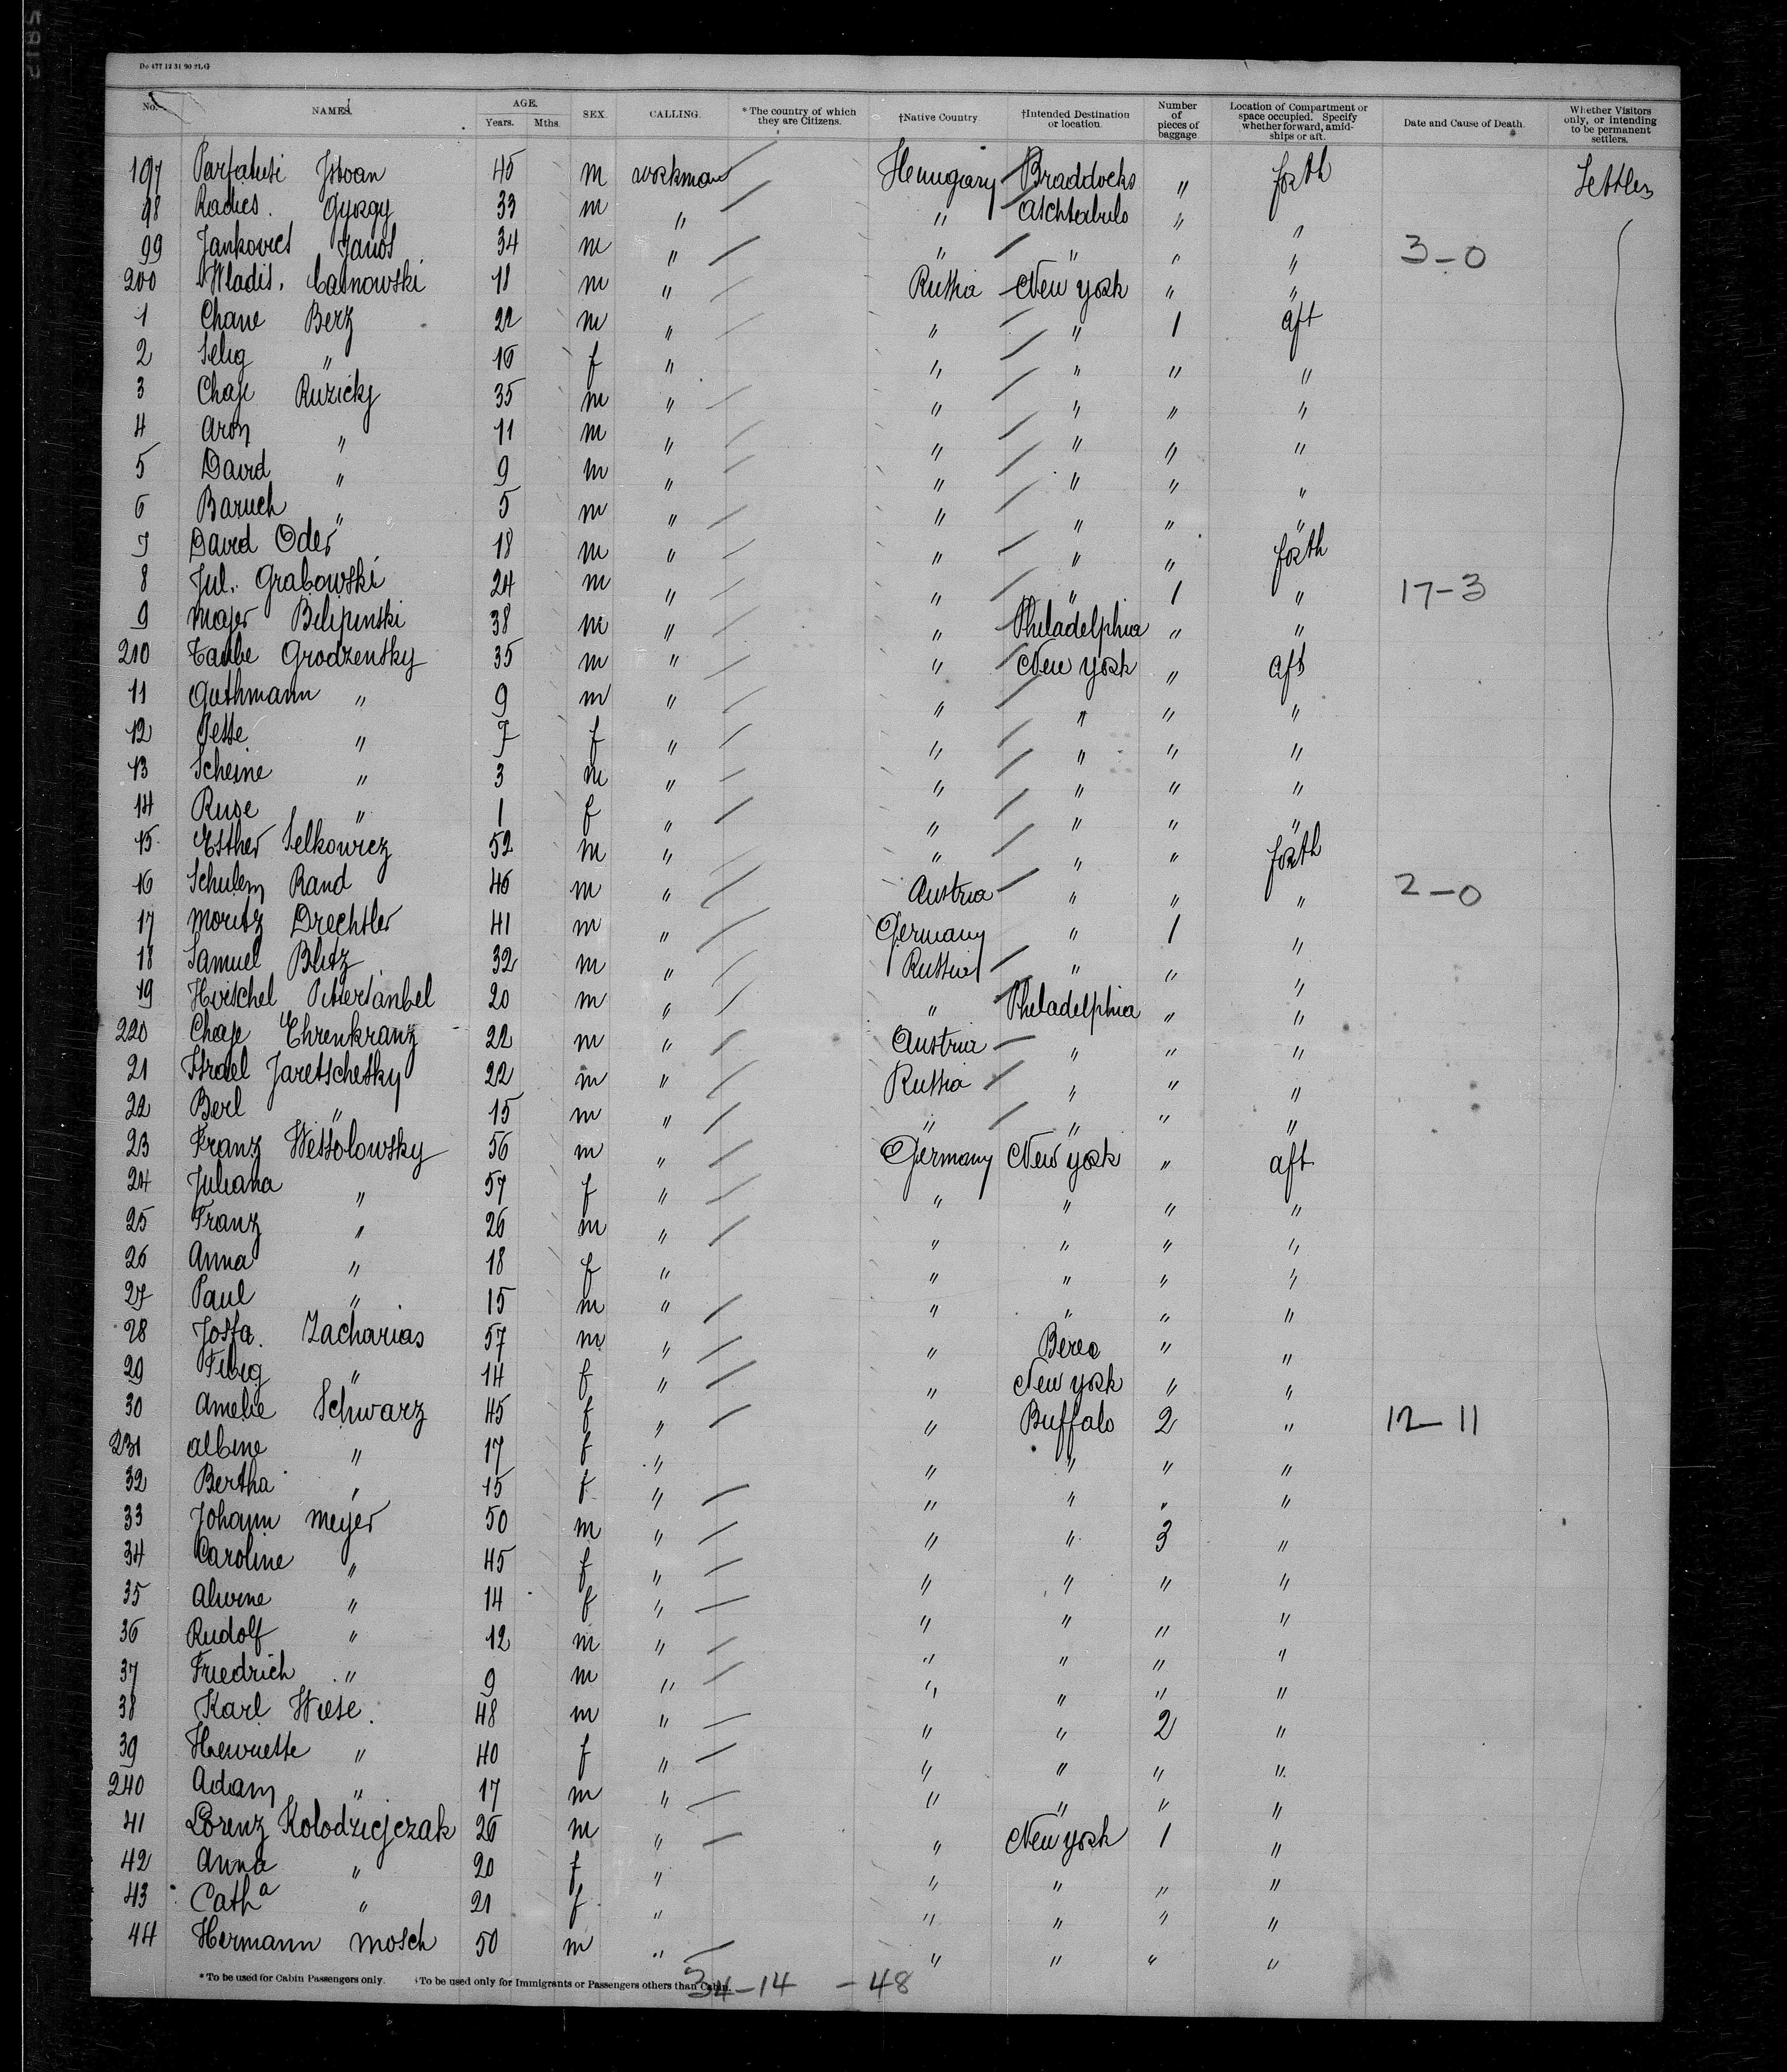 Do 477 12 31 90 2LG
No. NAMES. AGE. Years. Mths. SEX. CALLING. * The country of which they are Citizens. †Native Country †Intended Destination or location. Number of pieces of baggage. Location of Compartment or space occupied. Specify whether forward, amidships or aft. Date and Cause of Death. Whether Visitors only, or intending to be permanent settlers.
197 Istvan 45 m workman Hungary Braddocks " forth Settler
98 Raches. György 33 m " " Aschtabulo " "
99 Jankovics Janos 34 m " " " " " 3-0
200 Wladis. 18 m " Russia New York " "
1 Chane Berz 22 m " " " 1 aft
2 Selig " 16 f " " " " "
3 Chaje Ruzicky 35 m " " " " "
4 Aron " 11 m " " " " "
5 David " 9 m " " " " "
6 Baruch " 5 m " " " " "
7 David Oder 18 m " " " " forth
8 Jul. Grabowski 24 m " " " 1 " 17-3
9 Majer Bilipinski 38 m " " Philadelphia " "
210 Taube Grodzensky 35 m " " New York " aft
11 Guthmann " 9 m " " " " "
12 " 7 f " " " " "
13 Scheine " 3 m " " " " "
14 " 1 f " " " " "
15 Esther Selkowicz 52 m " " " " forth
16 Schulem Rand 46 m " Austria " " " 2-0
17 Moritz Drechsler 41 m " Germany " 1 "
18 Samuel Blitz 32 m " Russia " " "
19 Hirschel 20 m " " Philadelphia " "
220 Chaje Ehrenkranz 22 m " Austria " " "
21 Israel Jaretschesky 22 m " Russia " " "
22 Berl " 15 m " " " " "
23 Franz Wessolowsky 56 m " Germany New York " aft
24 Juliana " 57 f " " " " "
25 Franz " 26 m " " " " "
26 Anna " 18 f " " " " "
27 Paul " 15 m " " " " "
28 Josfa. Zacharias 57 m " " Berea " "
29 " 14 f " " New York " "
30 Amelie Schwarz 45 f " " Buffalo 2 " 12-11
231 Albine " 17 f " " " " "
32 Bertha " 15 f " " " " "
33 Johann Meyer 50 m " " " 3 "
34 Caroline " 45 f " " " " "
35 Alwine " 14 f " " " " "
36 Rudolf " 12 m " " " " "
37 Friedrich " 9 m " " " " "
38 Karl Wiese. 48 m " " " 2 "
39 Henriette " 40 f " " " " "
240 Adam " 17 m " " " " "
41 Lorenz Kolodziejczak 26 m " " New York 1 "
42 Anna " 20 f " " " " "
43 Cath a " 21 f " " " " "
44 Hermann Mosch 50 m " " " " "
* To be used for Cabin Passengers only. †To be used only for Immigrants or Passengers others than Cabin.
34-14 -48